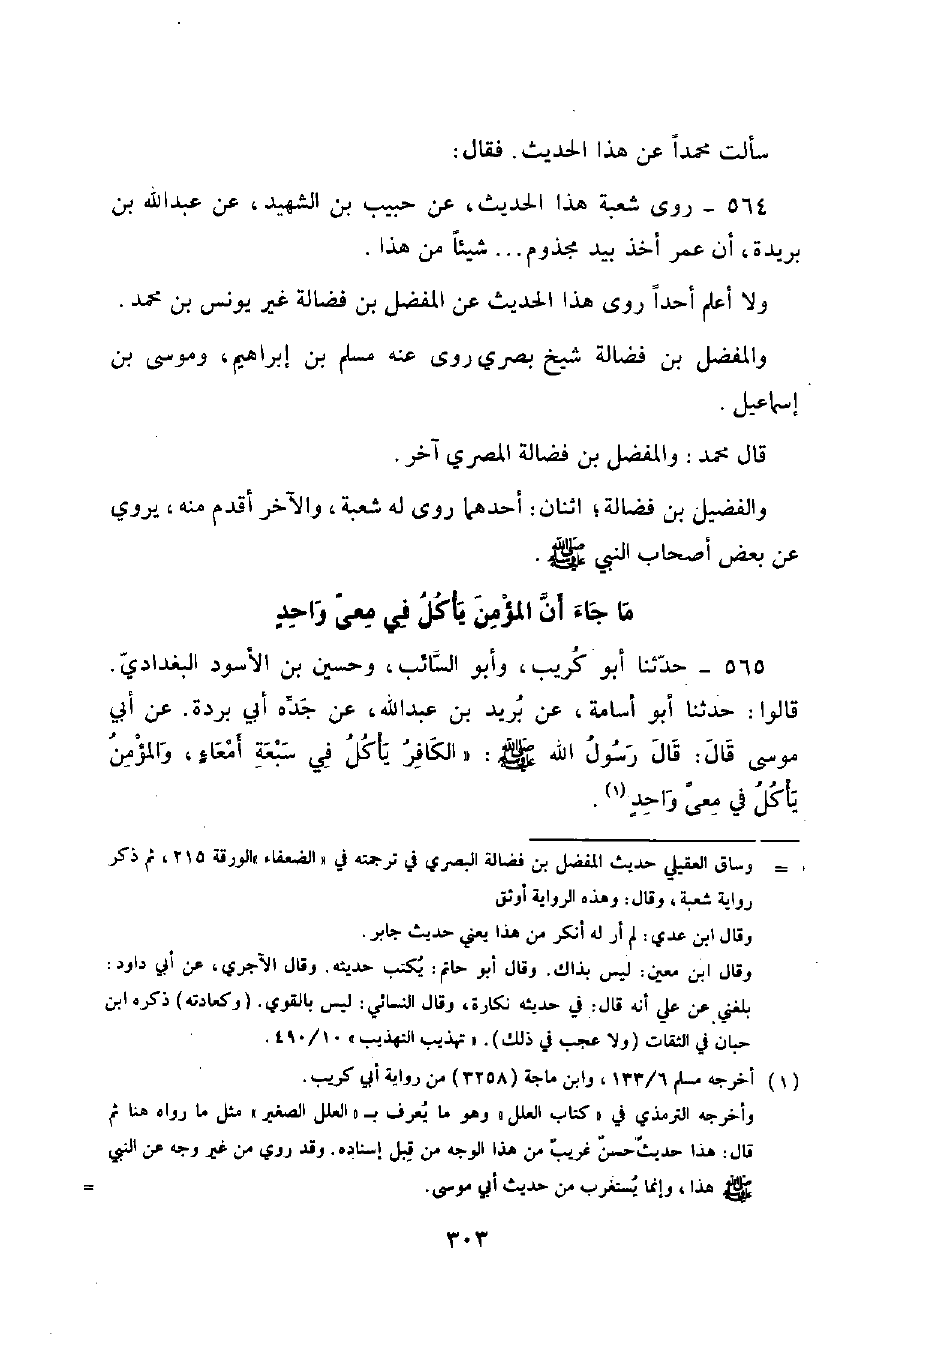 سألت محمداً عن هذا الحديث. فقال:
٥٦٤ ـ روى شعبة هذا الحديث، عن حبيب بن الشهيد، عن عبدالله بن
بريدة، أن عمر أخذ بيد مجذوم... شيئاً من هذا.
ولا أعلم أحداً روى هذا الحديث عن المفضل بن فضالة غير يونس بن محمد.
والمفضل بن فضالة شيخ بصري روى عنه مسلم بن إبراهيم، وموسى بن
إسماعيل.
قال محمد: والمفضل بن فضالة المصري آخر.
والفضيل بن فضالة؛ اثنان: أحدهما روى له شعبة، والآخر أقدم منه، يروي
عن بعض أصحاب النبي ﷺ.
مَا جَاءَ أَنَّ المؤْمِنَ يَأكُلُ فِي مِعىً وَاحِدٍ
٥٦٥ ـ حدّثنا أبو كُريب، وأبو السَّائب، وحسين بن الأسود البغداديّ.
قالوا: حدثنا أبو أسامة، عن بُريد بن عبدالله، عن جَدّه أبي بردة. عن أبي
موسى قَالَ: قَالَ رَسُولُ الله ﷺ: «الكَافِرُ يَأكُلُ فِي سَبْعَةِ أَمْعَاءٍ، وَالمؤْمِنُ
يَأكُلُ فِي مِعىً وَاحِدٍ(١).
= وساق العقيلي حديث المفضل بن فضالة البصري في ترجمته في «الضعفاء» الورقة ٢١٥، ثم ذكر
رواية شعبة، وقال: وهذه الرواية أوثق
وقال ابن عدي: لم أر له أنكر من هذا يعني حديث جابر.
وقال ابن معين: ليس بذاك. وقال أبو حاتم: يُكتب حديثه. وقال الآجري، عن أبي داود:
بلغني عن علي أنه قال: في حديثه نكارة، وقال النسائي: ليس بالقوي. (وكعادته) ذكره ابن
حبان في الثقات (ولا عجب في ذلك). «تهذيب التهذيب» ٤٩٠/١٠.
(١) أخرجه مسلم ١٣٣/٦، وابن ماجة (٣٢٥٨) من رواية أبي كريب.
وأخرجه الترمذي في «كتاب العلل» وهو ما يُعرف بـ «العلل الصغير» مثل ما رواه هنا ثم
قال: هذا حديثٌ حسنٌ غريبٌ من هذا الوجه من قبل إسناده. وقد روي من غير وجه عن النبي
ﷺ هذا، وإنما يُستغرب من حديث أبي موسى. =
٣٠٣